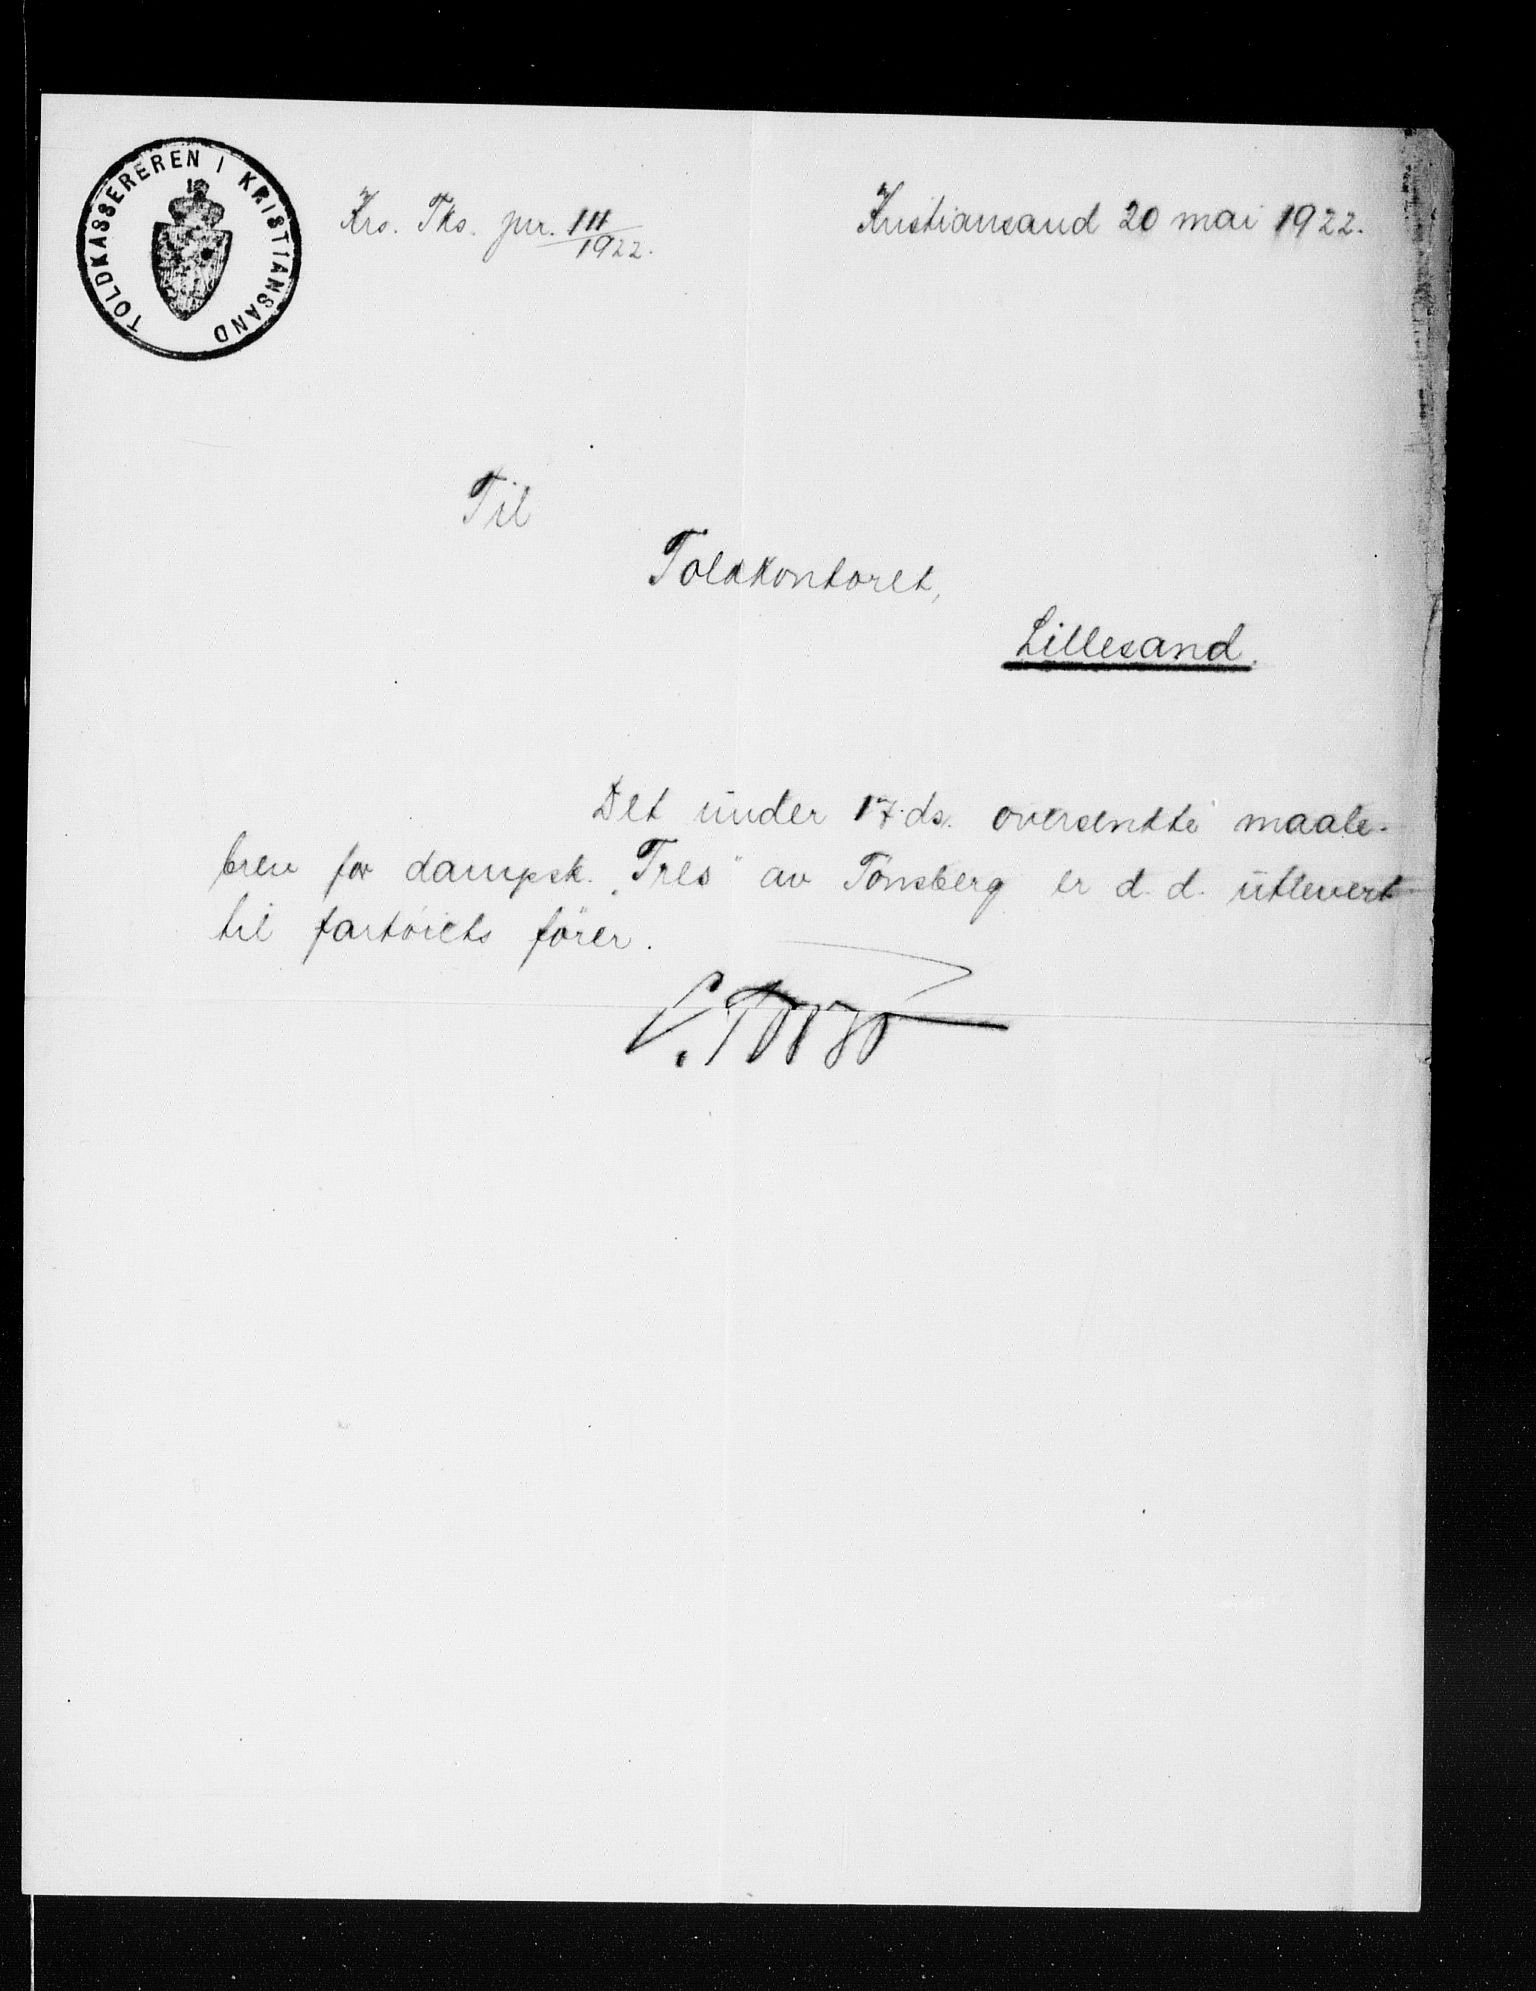 TOLDKASSEREREN I KRISTIANSAND
Krs. Tks. jnr. 111/1922.
Kristiansand 20 mai 1922.
Til
Toldkontoret,
Lillesand.
Det under 17. ds. oversendte maale-
brev for dampsk. „Tres" av Tønsberg er d. d. utlevert
til fartøiets fører.